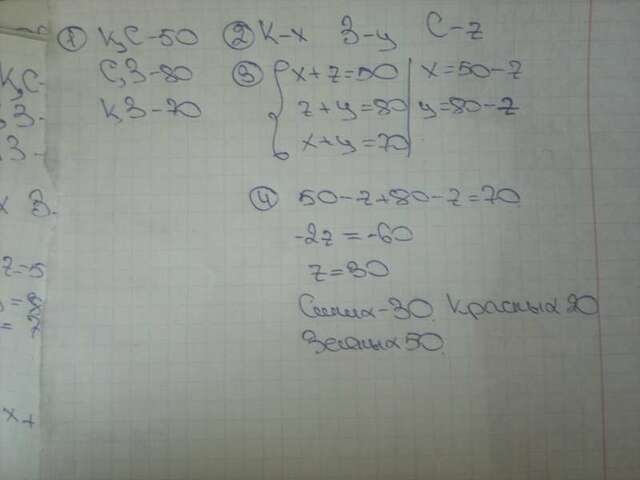 ① К,С-50 ② К-x З-y С-z
С,З-80 ③ { x+z=50 | x=50-z
К,З-70 z+y=80 | y=80-z
x+y=70
④ 50-z+80-z=70
-2z=-60
z=30
Синих-30. Красных 20
Зеленых 50.
К,С-
,З-
,З-
x З.
z-5
=8
=7
x+